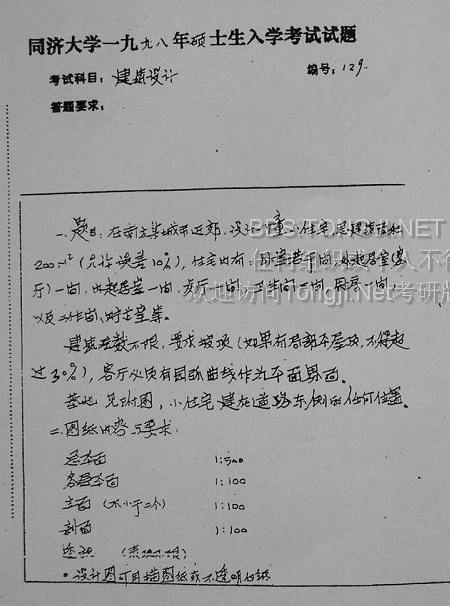 同济大学一九九八年硕士生入学考试试题
考试科目：建筑设计 编号：129
答题要求：
一、题目：在南方某城市近郊，设计一幢小住宅，总建筑面积
200m²（允许误差10%），住宅内有：卧室若干间，起居室（客
厅）一间，起居室一间，餐厅一间，卫生间二间，厨房一间，
以及工作间、贮藏室等。
建筑层数不限，要求坡顶（如果有局部平屋顶，不得超
过30%），客厅必须有圆弧曲线作为平面界面。
基地：见附图，小住宅建在道路东侧的任何位置。
二、图纸内容与要求：
总平面 1:500
各层平面 1:100
立面（不小于二个） 1:100
剖面 1:100
透视
设计图可用描图纸或不透明白纸